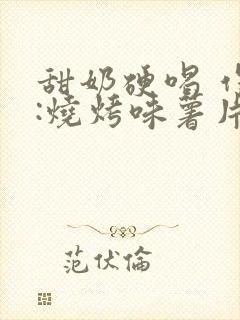 甜奶硬唱
:燒烤味薯片
范伏倫